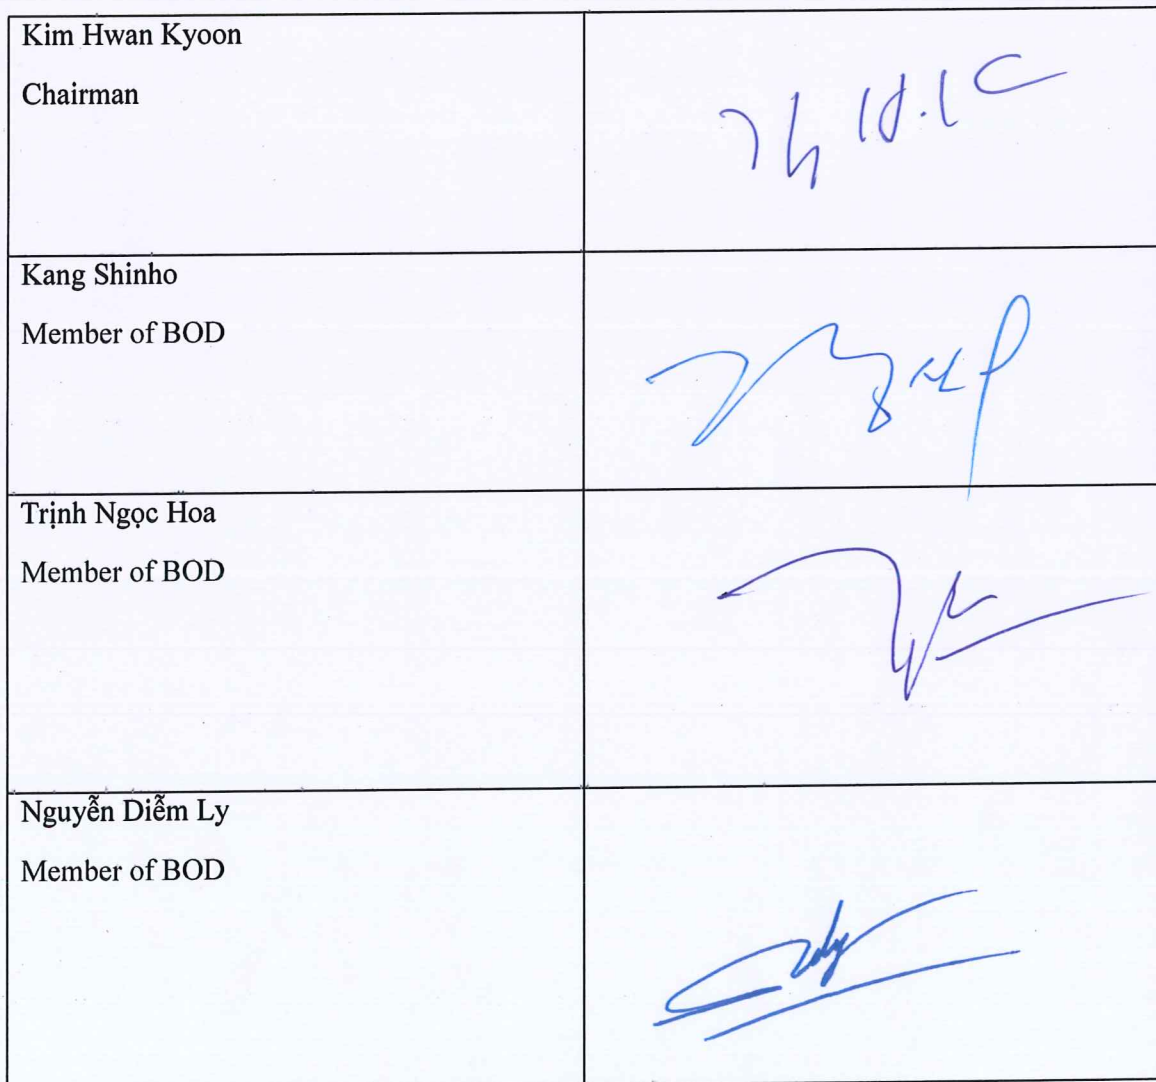 Kim Hwan Kyoon
Chairman
Kang Shinho
Member of BOD
Trịnh Ngọc Hoa
Member of BOD
Nguyễn Diễm Ly
Member of BOD